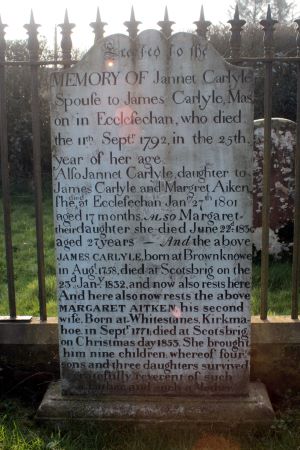 Erected to the
MEMORY OF Jannet Carlyle
Spouse to James Carlyle, Mas
on in Ecclefechan, who died
the 11th Septr. 1792, in the 25th
year of her age.
Also Jannet Carlyle, daughter to
James Carlyle and Margret Aiken,
She died at Ecclefechan Jany 27th 1801
aged 17 months. Also Margaret
their daughter she died June 22d 1830
aged 27 years — And the above
JAMES CARLYLE, born at Brownknowe
in Augt 1758, died at Scotsbrig on the
23d Jany 1832, and now also rests here
And here also now rests the above
MARGARET AITKEN, his second
wife. Born at Whitestanes, Kirkma
hoe, in Septr 1771; died at Scotsbrig,
on Christmas day 1853. She brought
him nine children; whereof four
sons and three daughters survived
gratefully reverent of such
a Father and such a Mother